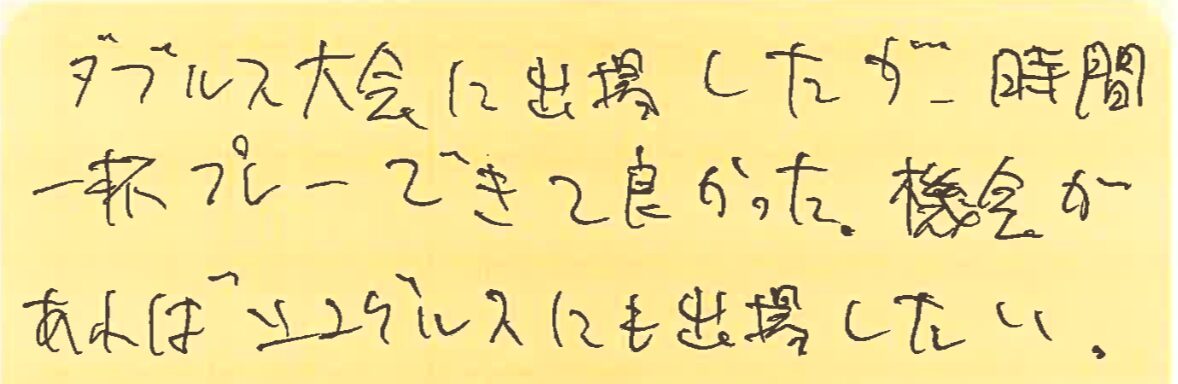 ダブルス大会に出場したが、時間
一杯プレーできて良かった。機会が
あればシングルスにも出場したい。